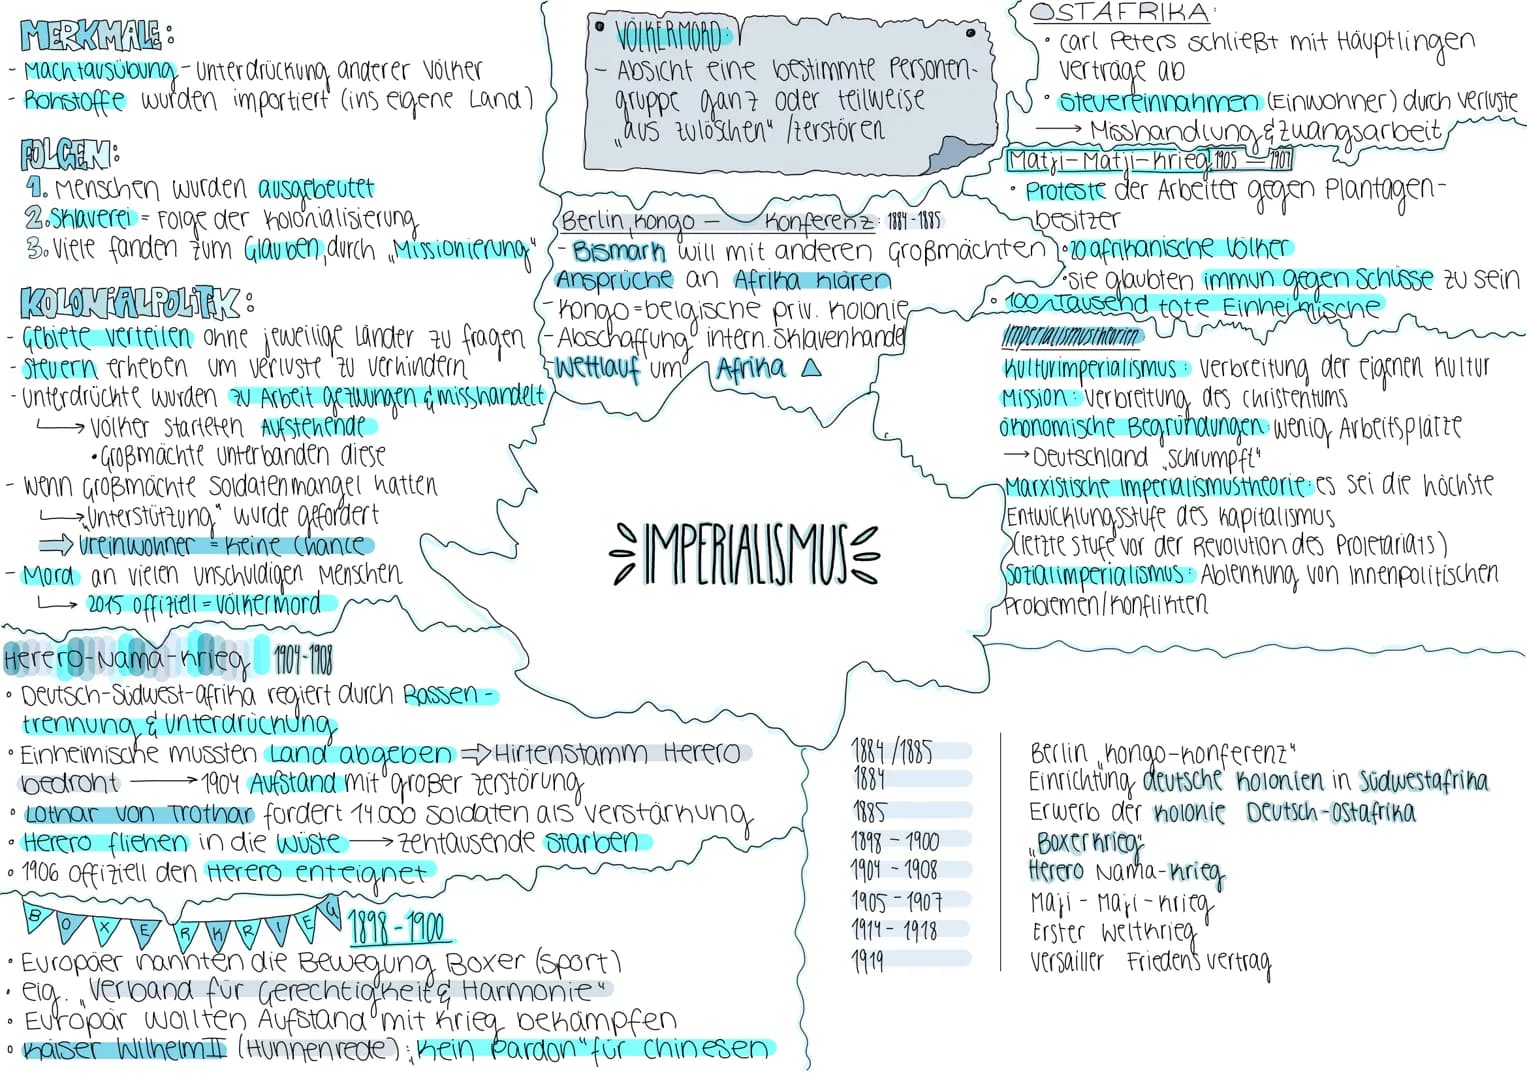 MERKMALE:
- Machtausübung - Unterdrückung anderer Völker
- Rohstoffe wurden importiert (ins eigene Land)
FOLGEN:
1. Menschen wurden ausgebeutet
2. Sklaverei = Folge der Kolonialisierung
3. Viele fanden zum Glauben, durch „Missionierung"
KOLONIALPOLITIK:
- Gebiete verteilen ohne jeweilige Länder zu fragen
- Steuern erheben um Verluste zu verhindern
- Unterdrückte wurden zu Arbeit gezwungen & misshandelt
→ Völker starteten Aufstehende
• Großmächte unterbanden diese
- Wenn Großmächte Soldatenmangel hatten
→ „Unterstützung" wurde gefordert
⇒ Ureinwohner = keine Chance
- Mord an vielen unschuldigen Menschen
→ 2015 offiziell = Völkermord
Herero-Nama-Krieg 1904-1908
• Deutsch-Südwest-afrika regiert durch Rassen-
trennung & Unterdrückung
• Einheimische mussten Land abgeben ⇒ Hirtenstamm Herero
bedroht → 1904 Aufstand mit großer Zerstörung
• Lothar von Trothar fordert 14000 Soldaten als Verstärkung
• Herero fliehen in die Wüste → zehntausende starben
• 1906 offiziell den Herero enteignet
BOXERKRIEG 1898-1900
• Europäer nannten die Bewegung Boxer (Sport)
• eig. „Verband für Gerechtigkeit & Harmonie"
• Europär wollten Aufstand mit Krieg bekämpfen
• Kaiser Wilhelm II (Hunnenrede): „Kein Pardon" für Chinesen
VÖLKERMORD:
- Absicht eine bestimmte Personen-
gruppe ganz oder teilweise
„aus zulöschen" /zerstören
Berlin, Kongo - Konferenz: 1884-1885
- Bismark will mit anderen Großmächten
Ansprüche an Afrika klären
- Kongo = belgische priv. Kolonie
- Abschaffung intern. Sklavenhandel
- Wettlauf um Afrika
IMPERIALISMUS
OSTAFRIKA:
• Carl Peters schließt mit Häuptlingen
Verträge ab
• Steuereinnahmen (Einwohner) durch Verluste
→ Misshandlung & Zwangsarbeit
Matji-Matji-Krieg 1905 - 1907
• Proteste der Arbeiter gegen Plantagen-
besitzer
• 20 afrikanische Völker
• sie glaubten immun gegen Schüsse zu sein
• 100-Tausend tote Einheimische
Imperialismustheorien
Kulturimperialismus: Verbreitung der eigenen Kultur
Mission: Verbreitung des Christentums
ökonomische Begründungen: wenig Arbeitsplätze
→ Deutschland „schrumpft"
Marxistische Imperialismustheorie: es sei die höchste
Entwicklungsstufe des Kapitalismus
(letzte Stufe vor der Revolution des Proletariats)
Sozialimperialismus: Ablenkung von innenpolitischen
Problemen/Konflikten
1884/1885 Berlin „Kongo-Konferenz"
1884 Einrichtung deutsche Kolonien in Südwestafrika
1885 Erwerb der Kolonie Deutsch-Ostafrika
1898 - 1900 „Boxerkrieg"
1904 - 1908 Herero Nama-Krieg
1905 - 1907 Maji - Maji - Krieg
1914 - 1918 Erster Weltkrieg
1919 Versailler Friedensvertrag